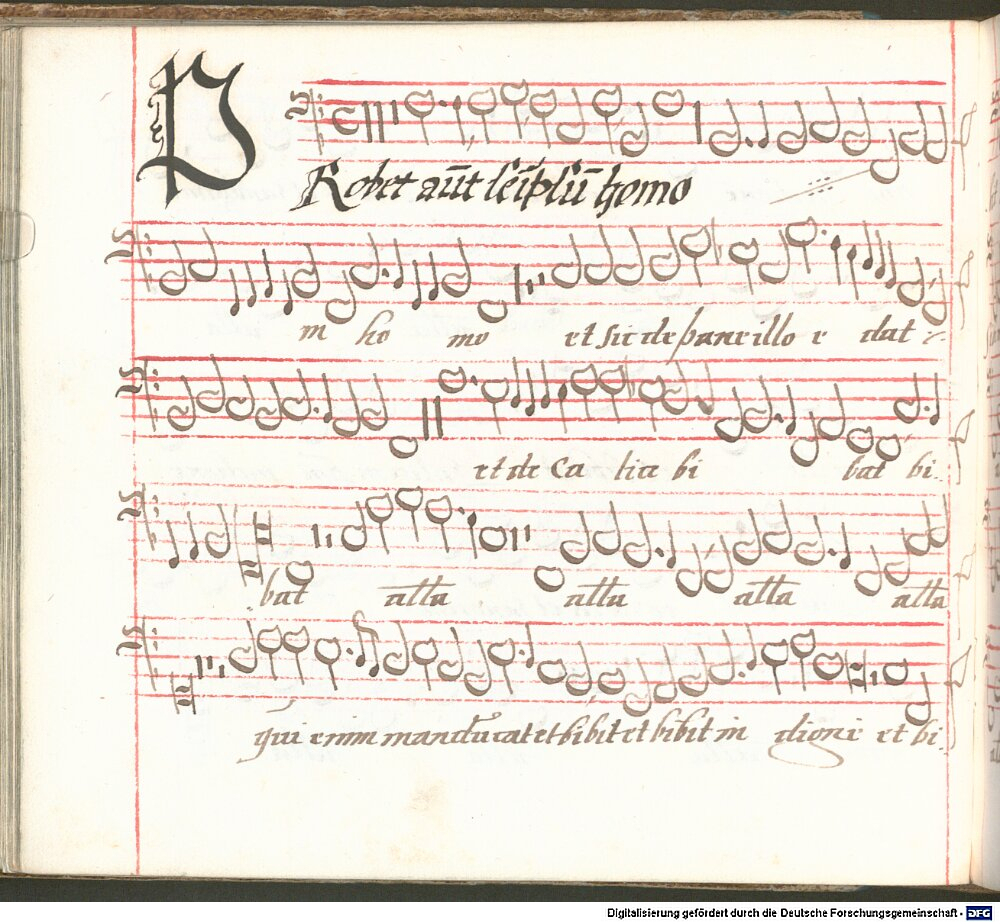 PRobet aūt seip̄ūm homo
m ho mo et sic de pane illo e dat
et de Ca lice bi bat bi
bat alla alla alla alla
qui enim manducat et bibit et bibit in digne et bi
Digitalisierung gefördert durch die Deutsche Forschungsgemeinschaft - DFG